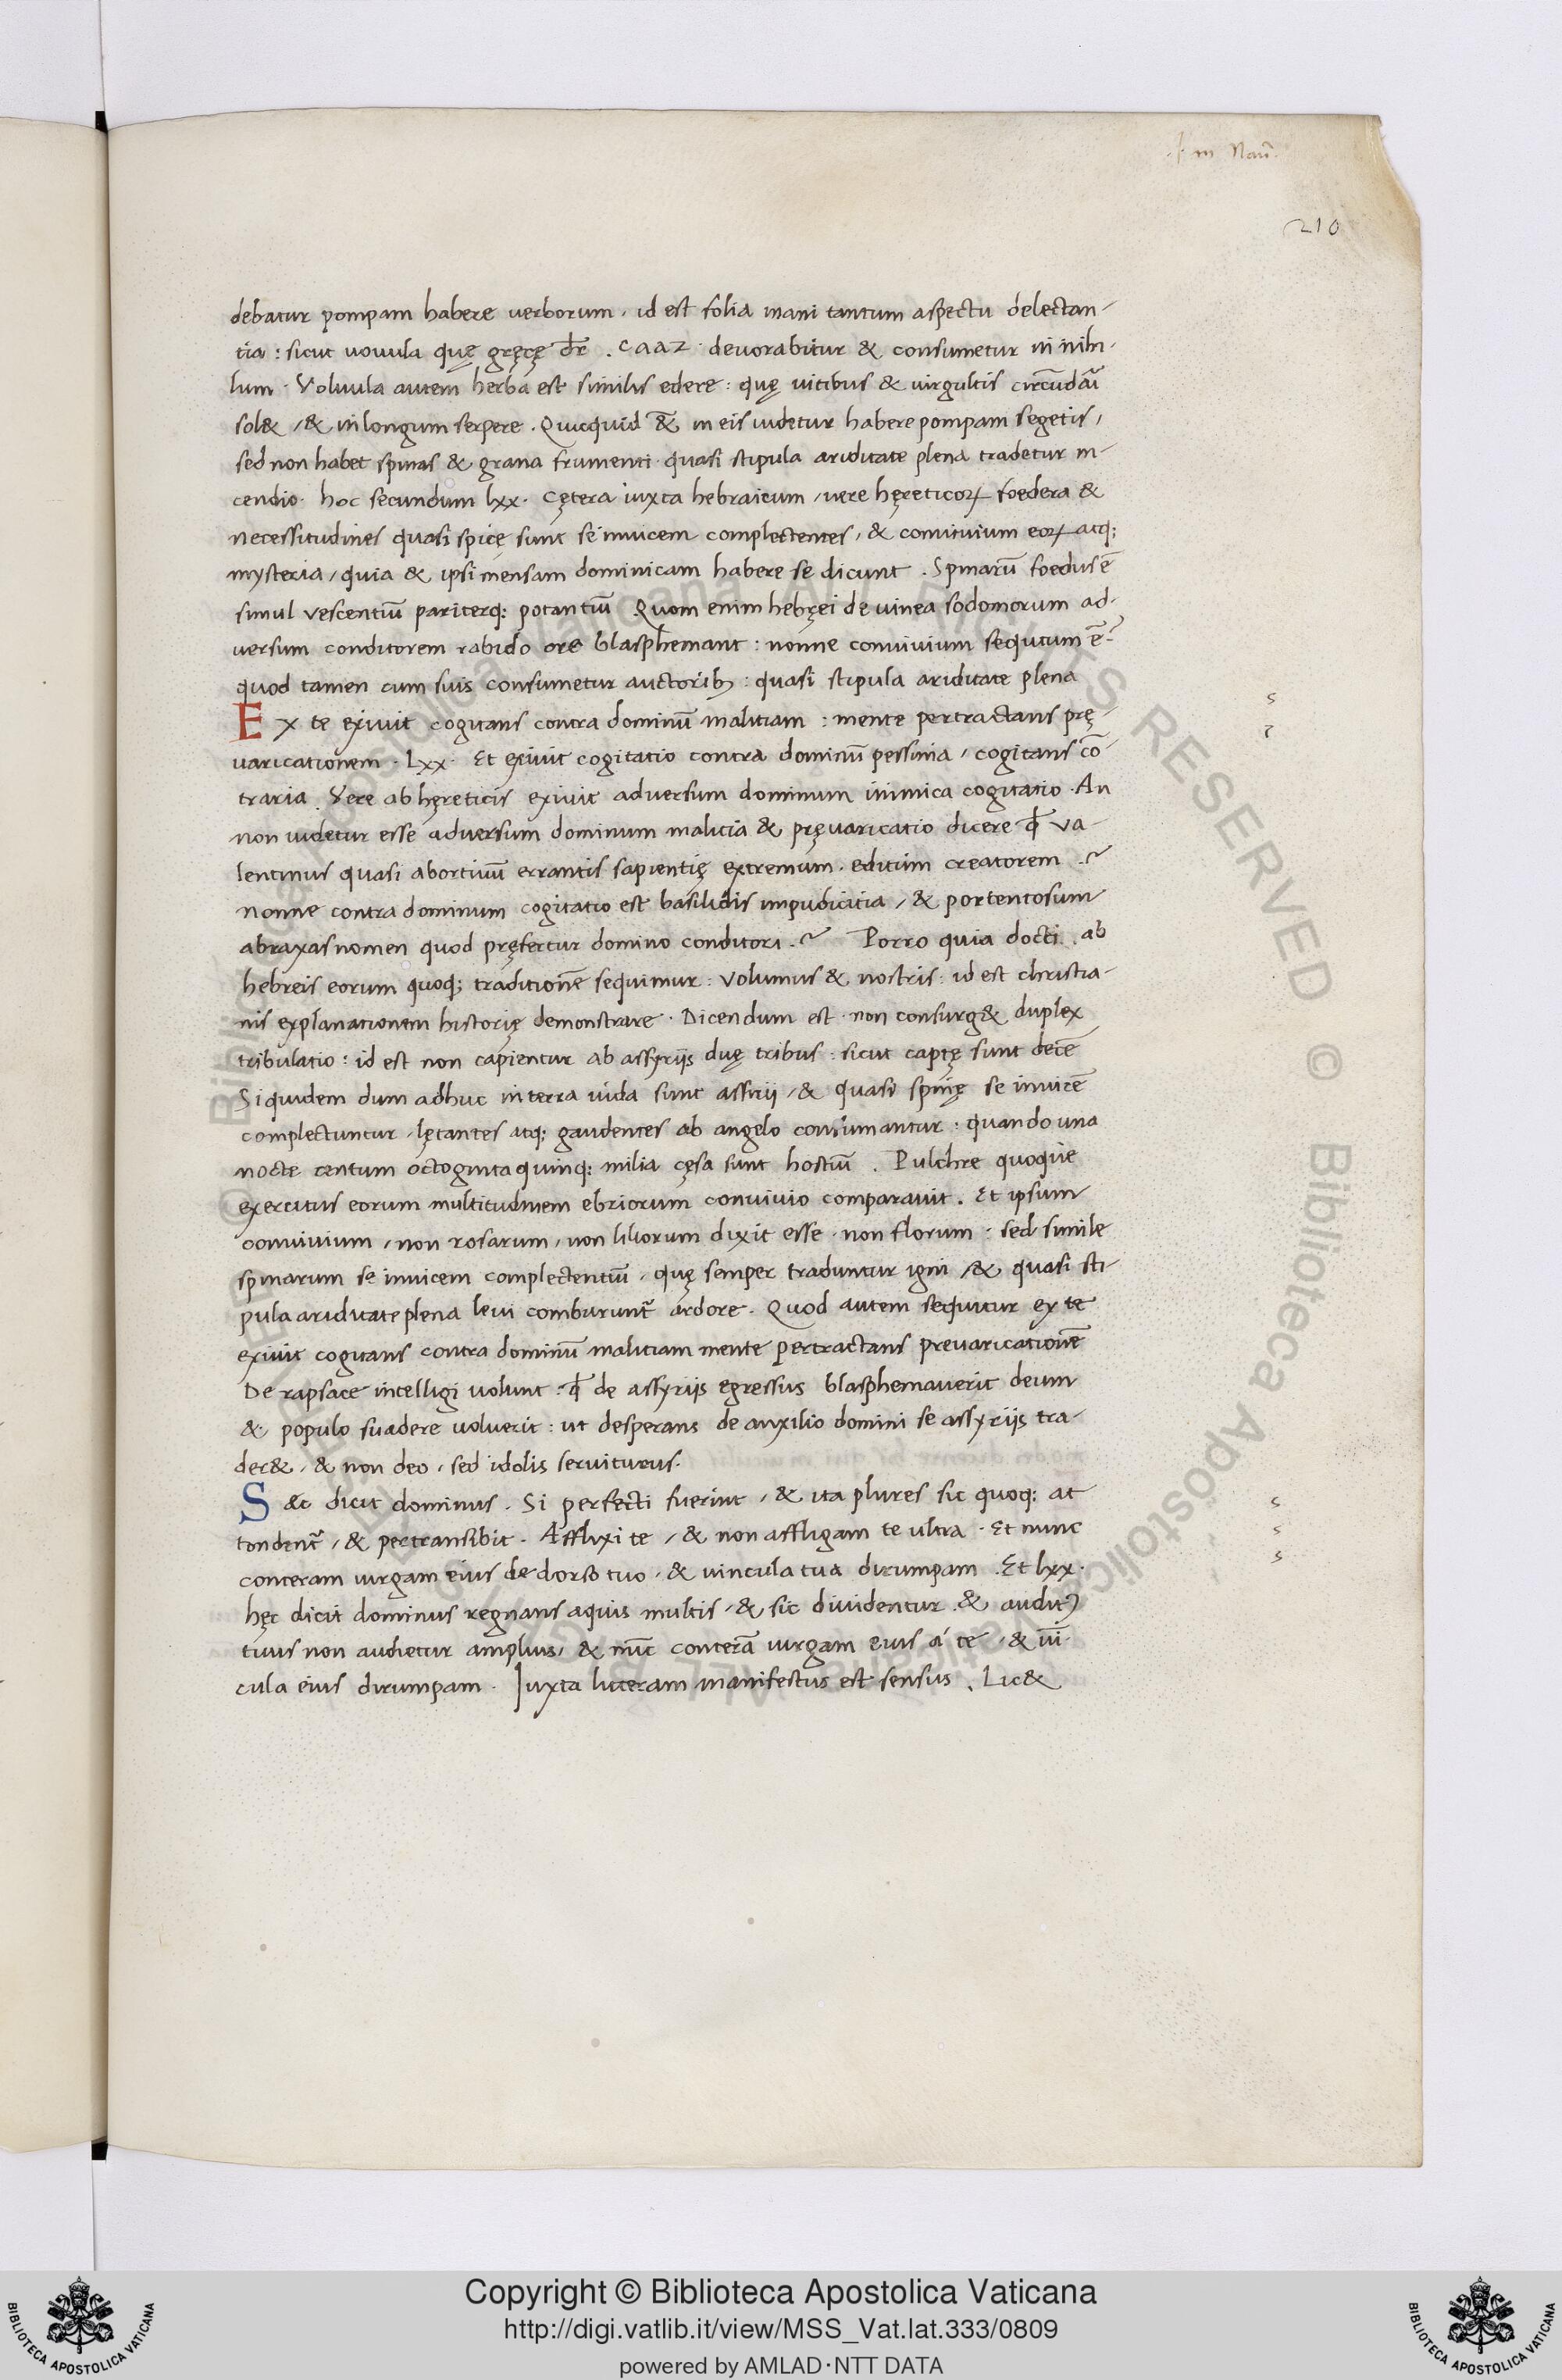 .f. in Nau̅.
210
debatur pompam habere verborum. id est folia inani tantum aspectu delectan-
tia: sicut uouula quę gręcę dr̅. caaz. deuorabitur & consumetur in nihi-
lum. Voluula autem herba est similis edere: quę uitibus & uirgultis circu̅dari
sol&, & in longum serpere. Quicquid & in eis uidetur habere pompam segetis,
sed non habet spinas & grana frumenti. quasi stipula ariditate plena tradetur in-
cendio. hoc secundum lxx. cętera iuxta hebraicum, uere hęreticoꝝ foedera &
necessitudines quasi spicę sunt se inuicem complectentes, & conuiuium eoꝝ atq;
mysteria, quia & ipsi mensam dominicam habere se dicunt. Spinaru̅ foedus e̅
simul vescentiu̅ pariterq; potantiu̅ Quom enim hebręi de uinea sodomorum ad-
versum conditorem rabido ore blasphemant: nonne conuiuium sequtum e̅?
quod tamen cum suis consumetur auctorib;: quasi stipula ariditate plena
Ex te exiuit cogitans contra dominu̅ malitiam: mente pertractans pre̜-
uaricationem. Lxx. Et exiuit cogitatio contra dominu̅ pessima, cogitans co̅-
traria. Vere ab hęreticis exiuit adversum dominum inimica cogitatio. An
non uidetur esse adversum dominum malicia & pręuaricatio dicere ꝙ va-
lentinus quasi abortiuu̅ errantis sapientię extremum. editum creatorem.~
nonne contra dominum cogitatio est basilidis impudicitia, & portentosum
abraxas nomen quod pręfertur domino conditori.~ Porro quia docti. ab
hebreis eorum quoq; traditione̅ sequimur: volumus & nostris: id est christia-
nis explanationem historię demonstrare. Dicendum est. non consurg& duplex
tribulatio: id est non capientur ab assyrijs duę tribus: sicut captę sunt dece̅
Siquidem dum adhuc in terra iuda sunt assirij, & quasi spinę se inuice̅
complectuntur, lętantes atq; gaudentes ab angelo consumantur: quando una
nocte centum octoginta quinq; milia cęsa sunt hostiu̅. Pulchre quoque
exercitus eorum multitudinem ebriorum convivio comparavit. Et ipsum
conuiuium, non rosarum, non liliorum dixit esse. non florum: sed simile
spinarum se inuicem complectentiu̅, quę semper traduntur igni, & quasi sti-
pula ariditate plena leui comburunt̃ ardore. Quod autem sequitur ex te
exiuit cogitans contra dominu̅ malitiam mente pertractans preuaricatione̅
De rapsace intelligi uolunt: ꝙ de assyrijs egressus blasphemaverit deum
& populo suadere uoluerit: ut desperans de auxilio domini se assyrijs tra-
der&, & non deo, sed idolis seruiturus.
Sęc dicit dominus. Si perfecti fuerint, & ita plures sic quoq; at
tondent̃, & pertransibit. Afflixi te, & non affligam te ultra. Et nunc
conteram uirgam eius de dorso tuo, & uincula tua dirumpam. Et lxx.
hęc dicit dominus regnans aquis multis, & sic diuidentur. & audit⁹
tuus non audietur amplius, & nu̅c contera̅ uirgam eius a te, & ui̅-
cula eius dirumpam. Iuxta litteram manifestus est sensus. Lic&
Copyright © Biblioteca Apostolica Vaticana
http://digi.vatlib.it/view/MSS_Vat.lat.333/0809
powered by AMLAD·NTT DATA